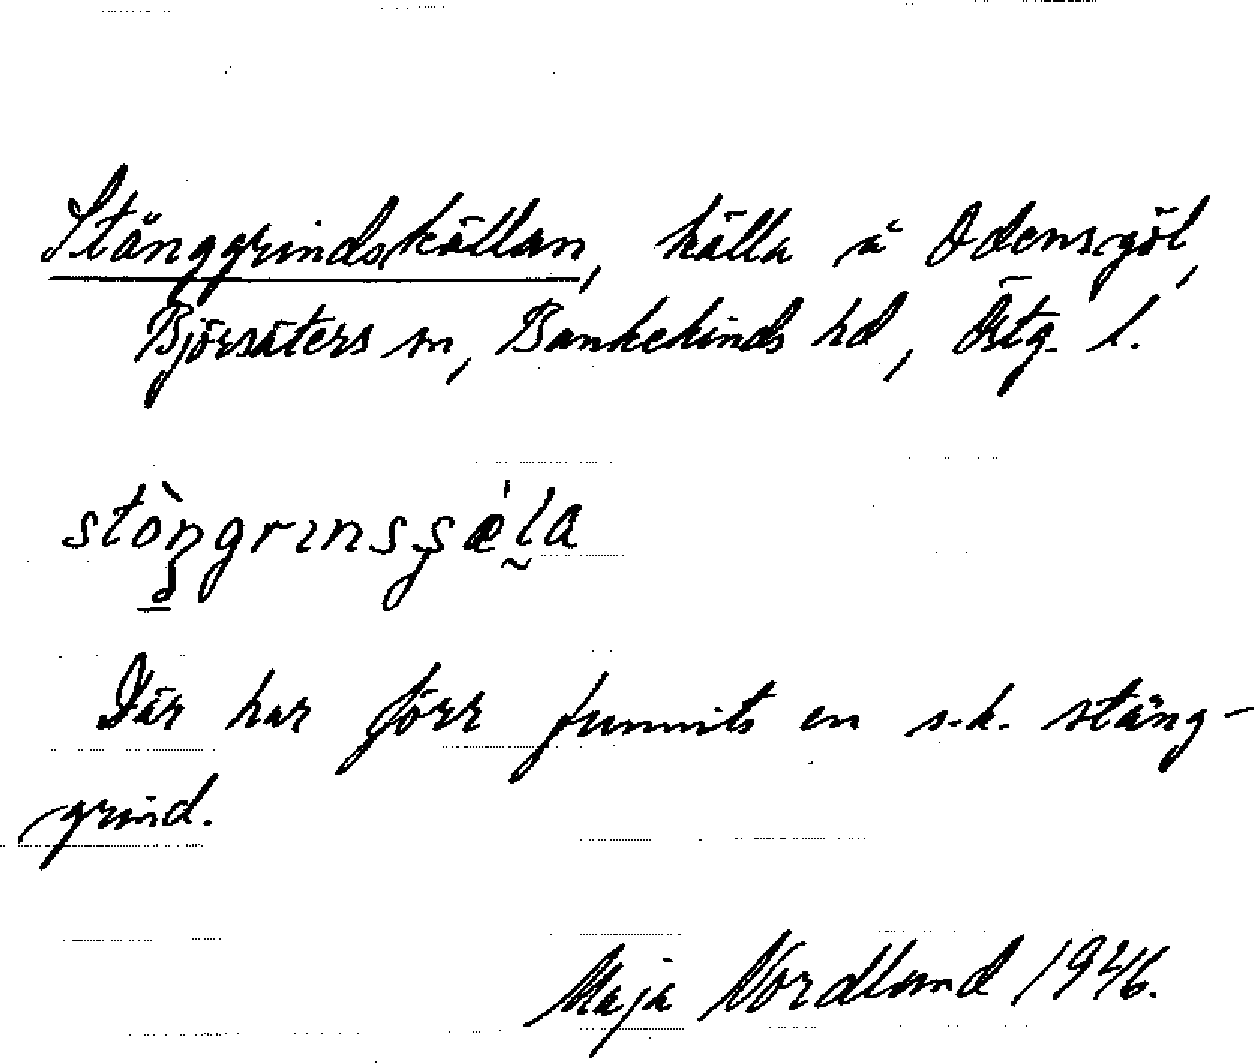 Stånggrindskällan, källa å Odensgöl,
Björsäters sn, Bankekinds hd, Östg. l.
Där har förr funnits en s.k. stång-
grind.
Maja Nordlund 1946.